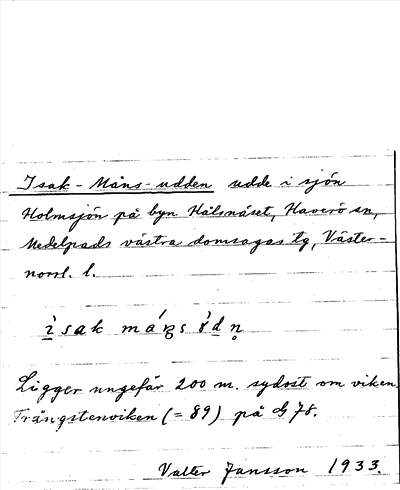 Isak-Måns-udden udde i sjön
Holmsjön på byn Hålsnäset, Haverö sn,
Medelpads västra domsagas tg, Väster-
norrl. l.
Ligger ungefär 200 m. sydost om viken
Trångstensviken (= 89) på G 78.
Valter Jansson 1933.